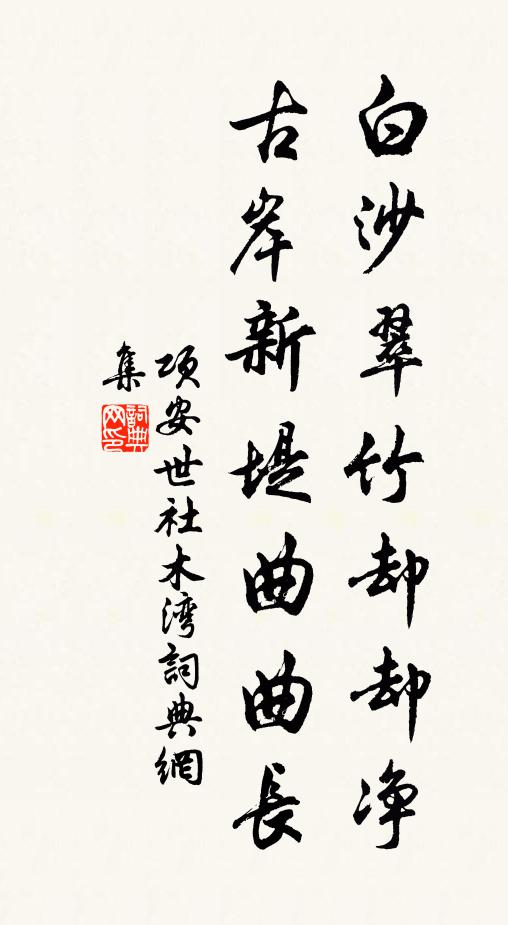 白沙翠竹却却净
古岸新堤曲曲長
项安世社木湾詞典網
集
詞典网印